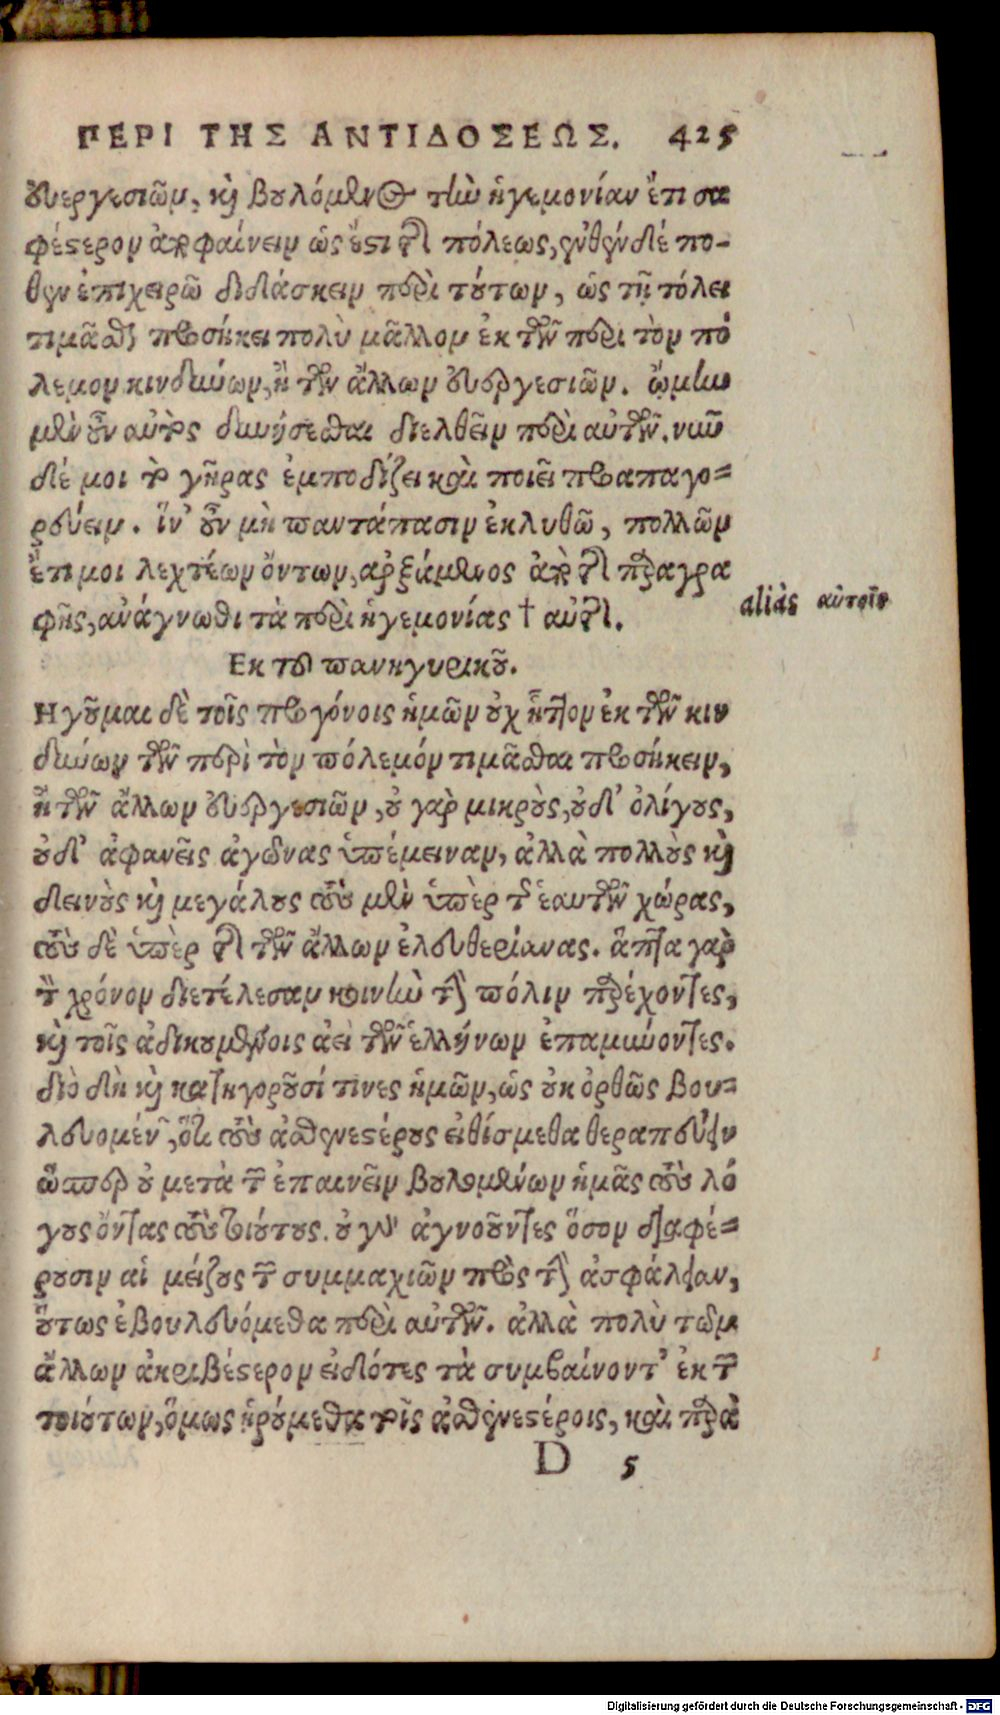 ΠΕΡΙ ΤΗΣ ΑΝΤΙΔΟΣΕΩΣ. 425
εὐεργεσιῶν, καὶ βουλόμενος τὴν ἡγεμονίαν ἔτι σα
φέστερον ἀποφαίνειν ὡς ἔστι τῆς πόλεως, ἐνθένδέ πο-
θεν ἐπιχειρῶ διδάσκειν περὶ τούτων, ὡς τῇ πόλει
τιμᾶσθαι προσήκει πολὺ μᾶλλον ἐκ τῶν περὶ τὸν πό
λεμον κινδύνων, ἢ τῶν ἄλλων εὐεργεσιῶν. ᾤμην
μὲν οὖν αὐτὸς δυνήσεσθαι διελθεῖν περὶ αὐτῶν. νῦν
δέ μοι τὸ γῆρας ἐμποδίζει καὶ ποιεῖ προαπαγο=
ρεύειν. ἵν' οὖν μὴ παντάπασιν ἐκλυθῶ, πολλῶν
ἔτι μοι λεχτέων ὄντων, ἀρξάμενος ἀπὸ τῆς παραγρα
φῆς, ἀνάγνωθι τὰ περὶ ἡγεμονίας † αὐτῆς.
aliàs αὐτοῖς
Εκ τοῦ πανηγυρικοῦ.
Ηγοῦμαι δὲ τοῖς προγόνοις ἡμῶν οὐχ ἧττον ἐκ τῶν κιν
δύνων τῶν περὶ τὸν πόλεμόν τιμᾶσθαι προσήκειν,
ἢ τῶν ἄλλων εὐεργεσιῶν, οὐ γὰρ μικροὺς, οὐδ' ὀλίγους,
οὐδ' ἀφανεῖς ἀγῶνας ὑπέμειναν, ἀλλὰ πολλοὺς καὶ
δεινοὺς καὶ μεγάλους τοὺς μὲν ὑπὲρ τῆς ἑαυτῶν χώρας,
τοὺς δὲ ὑπὲρ τῆς τῶν ἄλλων ἐλευθερίας. ἅπαντα γὰρ
τὸν χρόνον διετέλεσαν κοινὴν τὴν πόλιν παρέχοντες,
καὶ τοῖς ἀδικουμένοις ἀεὶ τῶν ἑλλήνων ἐπαμύνοντες.
διὸ δὴ καὶ κατηγοροῦσί τινες ἡμῶν, ὡς οὐκ ὀρθῶς βου=
λευομένων, ὅτι τοὺς ἀσθενεστέρους εἰθίσμεθα θεραπεύειν
ὥσπερ οὐ μετὰ τῶν ἐπαινεῖν βουλομένων ἡμᾶς τοὺς λό
γους ὄντας τοὺς τοιούτους. οὐ γὰρ ἀγνοοῦντες ὅσον διαφέ=
ρουσιν αἱ μείζους τῶν συμμαχιῶν πρὸς τὴν ἀσφάλειαν,
οὕτως ἐβουλευόμεθα περὶ αὐτῶν. ἀλλὰ πολὺ τῶν
ἄλλων ἀκριβέστερον εἰδότες τὰ συμβαίνοντ' ἐκ τῶν
τοιούτων, ὅμως ᾑρούμεθα τοῖς ἀσθενεστέροις, καὶ παρὰ
D 5
Digitalisierung gefördert durch die Deutsche Forschungsgemeinschaft - DFG